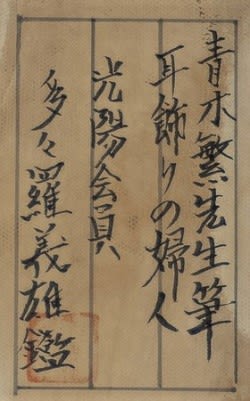 青木繁先生筆
耳飾りの婦人
光陽会員
多々羅義雄鑑